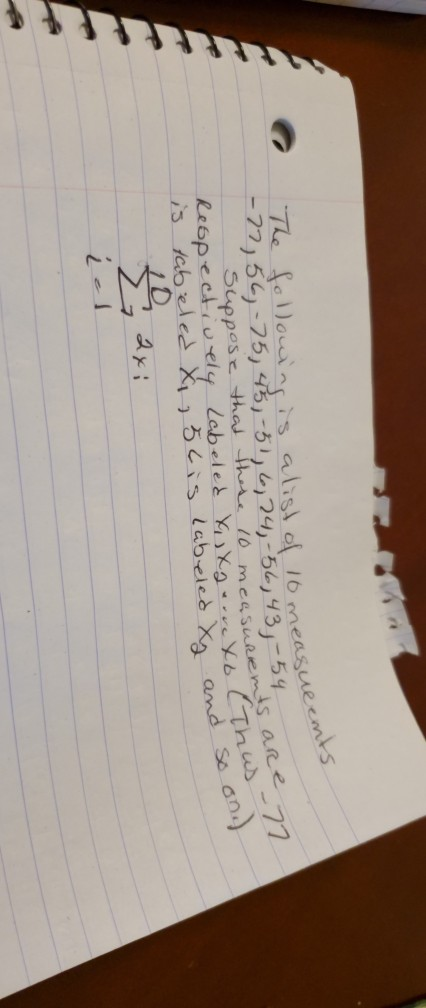 The following is a list of 10 measurements
-77, 56, -75, 45, -51, 6, 74, -56, 43, -54
Suppose that these 10 measurements are -77
Respectively labeled x1, x2 .... x10 (Thus
is labeled x1, 56 is labeled x2 and so on.)
10
∑ 2xi
i=1